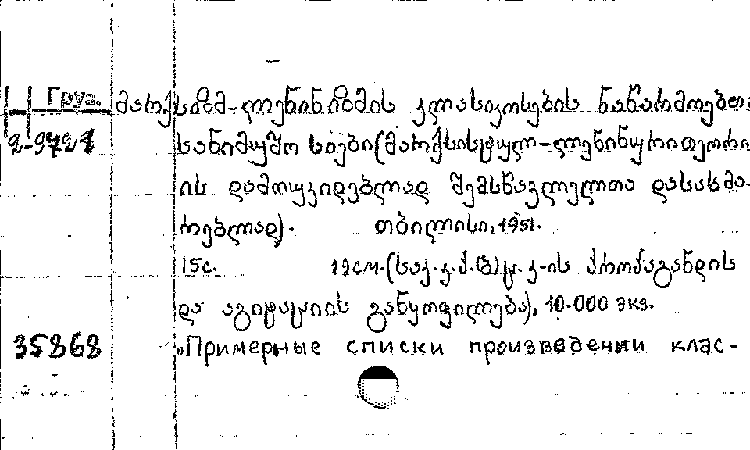 Груз. მარქსიზმ-ლენინიზმის კლასიკოსების ნაწარმოებთა
2-9721 სანიმუშო სიები(მარქსისტულ-ლენინური თეორი
ის დამოუკიდებლად შემსწავლელთა დასახმა-
რებლად). თბილისი, 1951.
15с. 19см.(საქ. კ. პ. (ბ) ც. კ-ის პროპაგანდის
და აგიტაციის განყოფილება), 10.000 экз.
35868 „Примерные списки произведении клас-